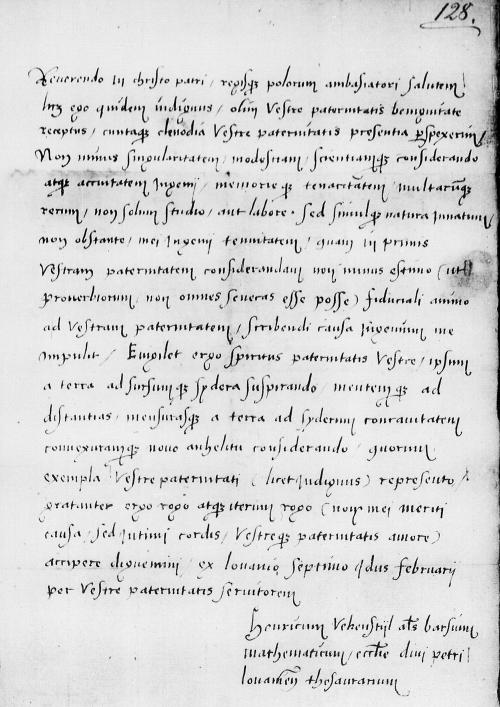 128.
Reverendo in christo patri / regisq3 polorum ambasiatori salutem /
licz ego quidem indignus / olim Vestre paternitatis benignitate
receptus / cuntaq3 clenodia Vestre paternitatis presentia perspexerim /
Non minus singularitatem / modestiam / scientiamq3 considerando
atq3 accuitatem Ingenij / memorie q3 tenacitatem / multarumq3
rerum / non solum studio / aut labore . sed simulq3 natura innatam /
non obstante / mei Ingenij tenuitatem / quam in primis
Vestram paternitatem considerandam non minus estimo ( ut
proverbiorum / non omnes senecas esse posse ) fiduciali animo
ad Vestram paternitatem / scribendi causa Ingenium me
impulit / Evigilet ergo spiritus paternitatis Vestre / ipsum
a terra ad sursumq3 sydera suspirando / mentem q3 ad
distantias / mensurasq3 a terra ad syderum concavitatem
convexitatemq3 novo anhelitu considerando / quorum
exempla Vestre paternitati ( licet Indignus ) represento /
gratanter ergo rogo atq3 iterum rogo ( non mei meriti
causa / sed intimi cordis / Vestreq3 paternitatis amore )
accipere dignemini / ex lovanio septimo Idus februarij
per Vestre paternitatis servitorem
Henricum Vekenstijl als barsum
mathematicum / ecclie divi petri
lovanien thesaurarium